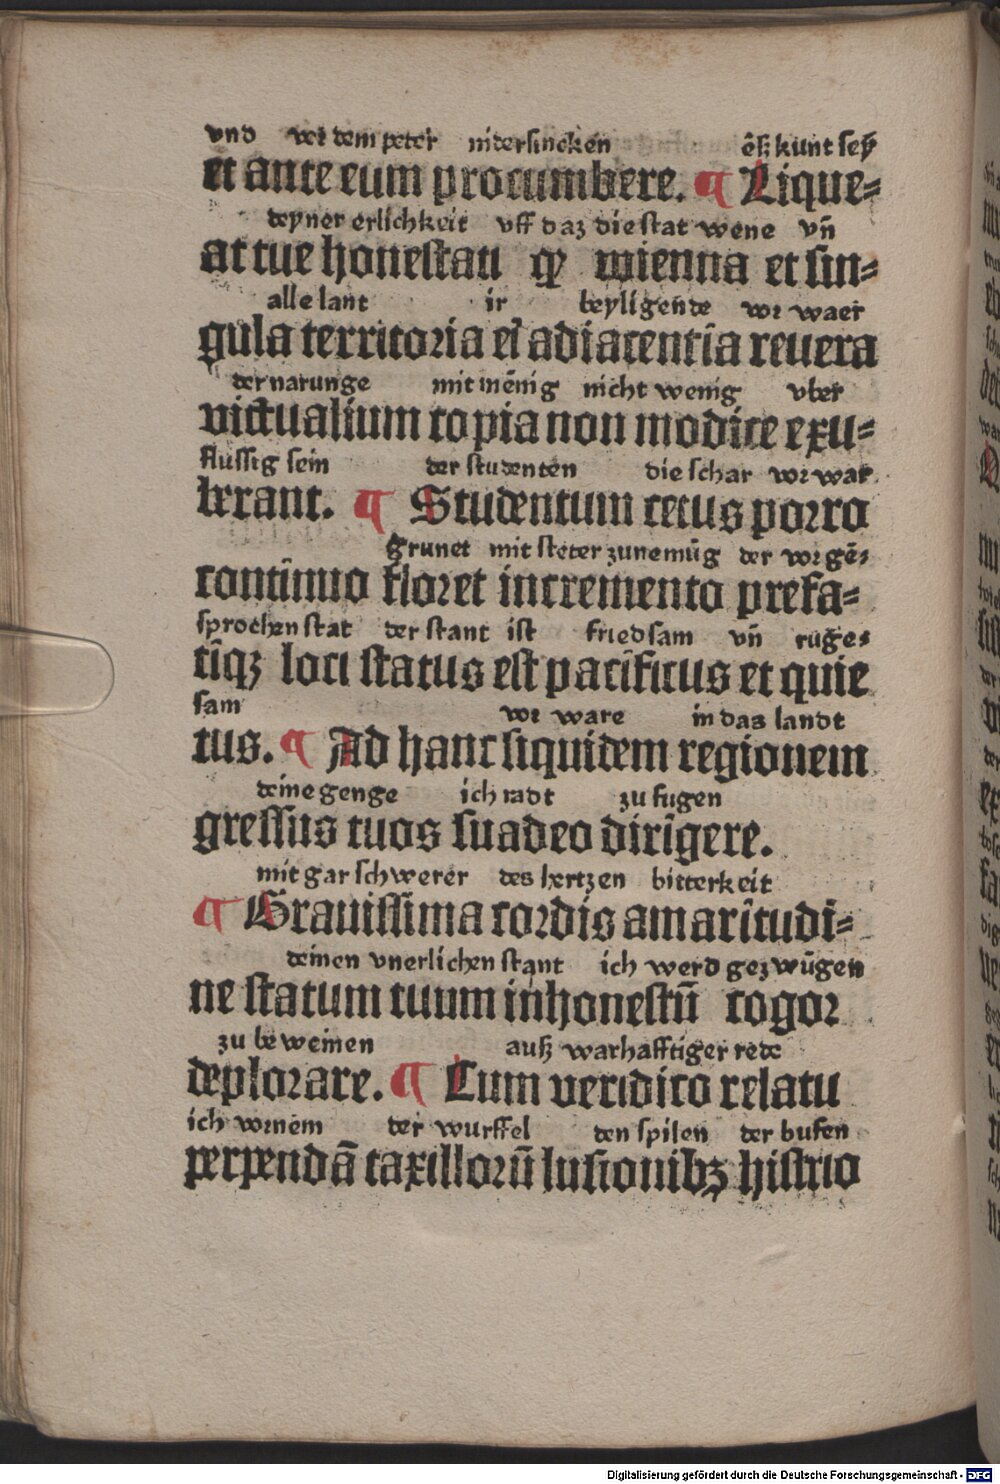 vnd vor dem peter nidersincken eß kunt sey
et ante eum procumbere. ¶ Lique⸗
deyner erlichkeit vff daz die stat wene vn̄
at tue honestati ꝙ wienna et sin⸗
alle lant ir beyligende vor waer
gula territoria ei adiacentia reuera
der narunge mit menig nicht wenig vber
victualium copia non modice exu⸗
flussig sein der studenten die schar vor war
berant. ¶ Studentum cetus porro
grunet mit steter zunemūg der vorgē⸗
continuo floret incremento prefa⸗
sprochen stat der stant ist friedsam vn̄ ruge⸗
tiqꝫ loci status est pacificus et quie
sam vor ware in das landt
tus. ¶ Ad hanc siquidem regionem
deine genge ich radt zu fugen
gressus tuos suadeo dirigere.
mit gar schwerer des hertzen bitterkeit
¶ Grauissima cordis amaritudi⸗
deinen vnerlichen stant ich werd gezwūgen
ne statum tuum inhonestū cogor
zu beweinen auß warhafftiger rede
deplorare. ¶ Cum veridico relatu
ich vornem der wurffel den spilen der bufen
perpendā taxillorū lusionibꝫ histrio
Digitalisierung gefördert durch die Deutsche Forschungsgemeinschaft - DFG